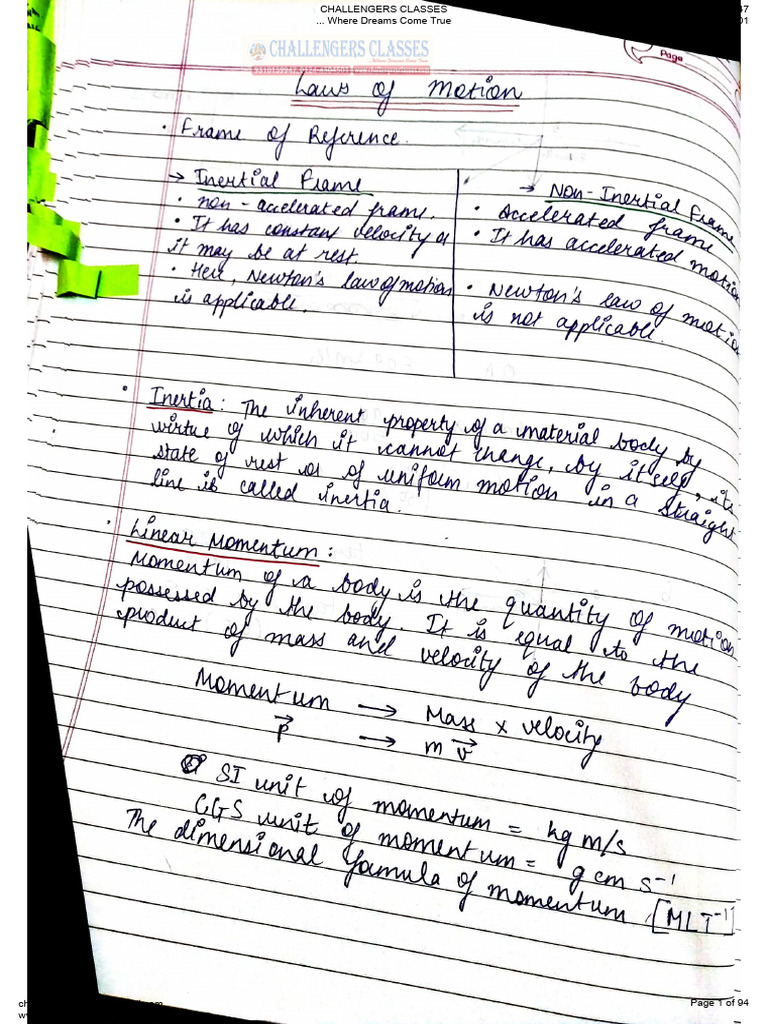 CHALLENGERS CLASSES
... Where Dreams Come True
CHALLENGERS CLASSES
Page
Laws of Motion
• Frame of Reference.
→ Inertial Frame
• non-accelerated frame.
• It has constant velocity or
it may be at rest.
• Here, Newton's law of motion
is applicable.
→ Non-Inertial Frame
• Accelerated frame
• It has accelerated motion
• Newton's law of motion
is not applicable.
• Inertia: The inherent property of a material body by
virtue of which it cannot change, by itself, its
state of rest or of uniform motion in a straight
line is called inertia.
• Linear Momentum:
Momentum of a body is the quantity of motion
possessed by the body. It is equal to the
product of mass and velocity of the body
Momentum → Mass x velocity
p⃗ → m v⃗
SI unit of momentum = kg m/s
CGS unit of momentum = g cm s⁻¹
The dimensional formula of momentum [MLT⁻¹]
Page 1 of 94